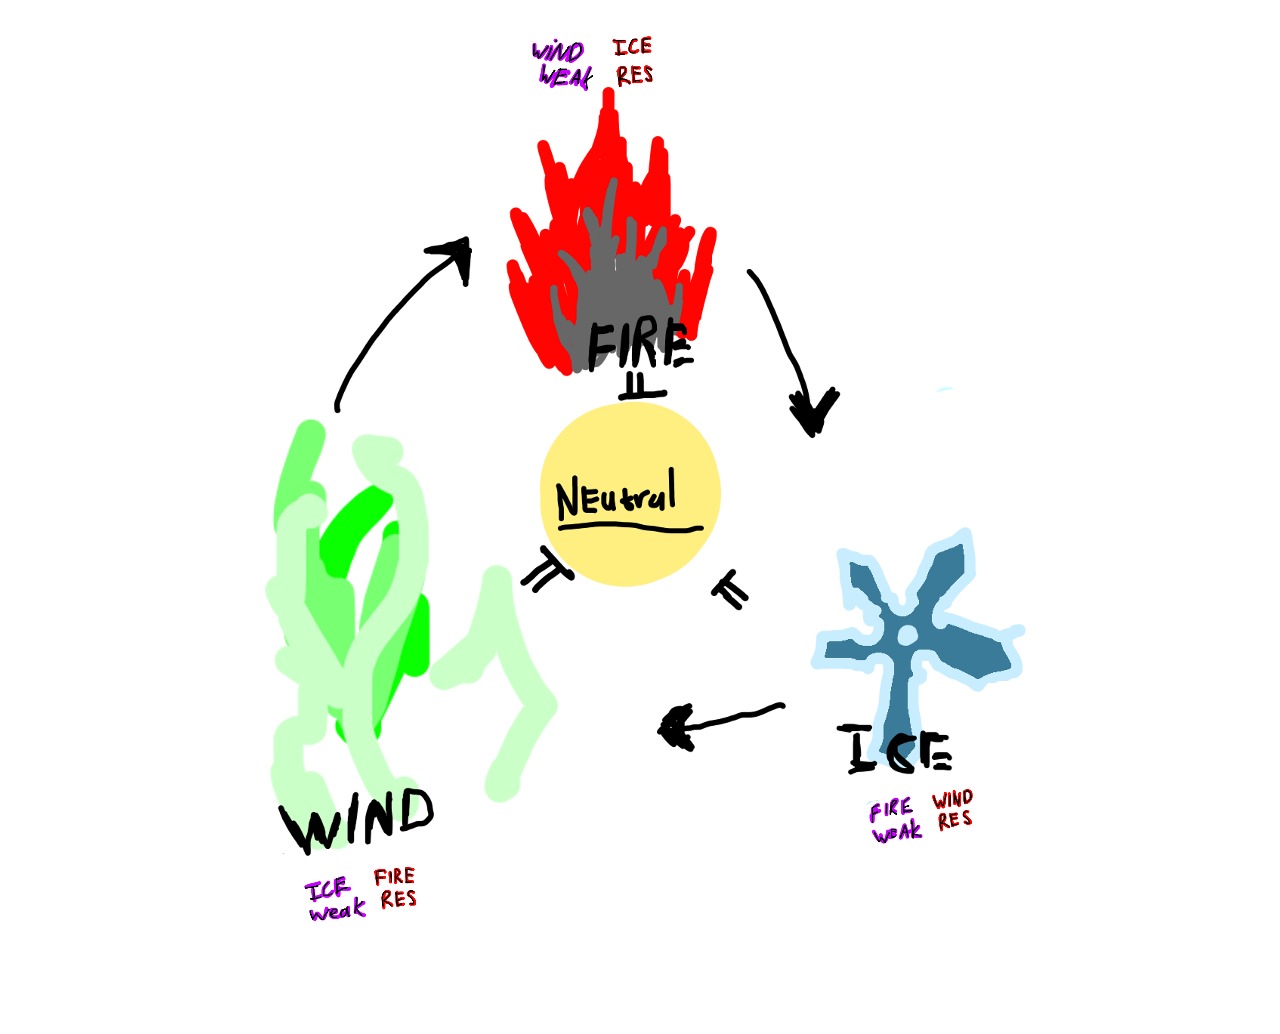 WIND
WEAK
ICE
RES
FIRE
NEutral
ICE
FIRE
WEAK
WIND
RES
WIND
ICE
weak
FIRE
RES